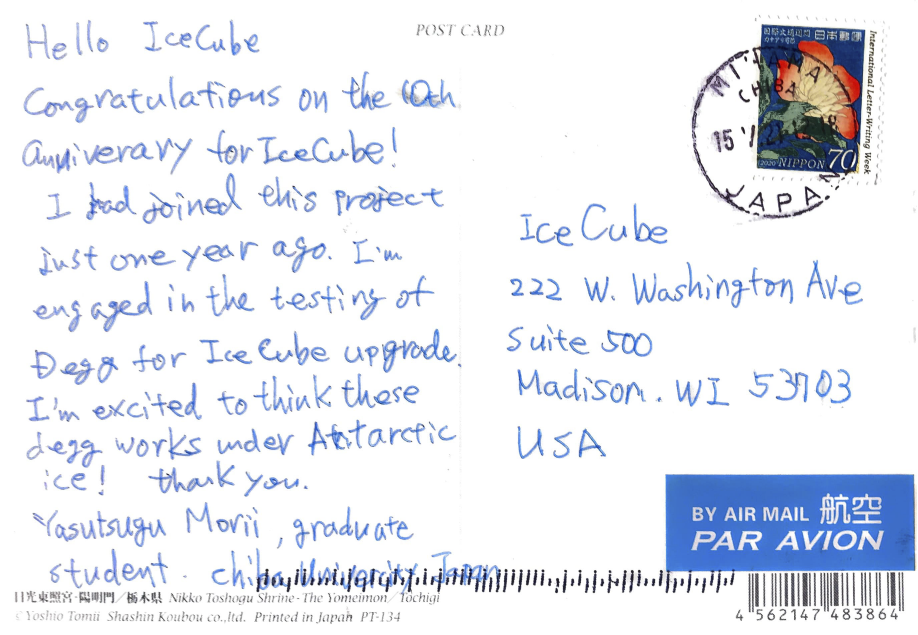 POST CARD
Hello IceCube
Congratulations on the 10th
Anniverary for IceCube!
I had joined this project
just one year ago. I'm
engaged in the testing of
Degg for IceCube upgrade.
I'm excited to think these
degg works under Antarctic
ice! thank you.
Yasutsugu Morii, graduate
student. chiba University Japan
日光東照宮・陽明門/栃木県 Nikko Toshogu Shrine-The Yomeimon/Tochigi
© Yoshio Tomii Shashin Koubou co.,ltd. Printed in Japan PT-134
日本郵便
International Letter-Writing Week
(2020) NIPPON 70
CHIBA
JAPAN
IceCube
222 W. Washington Ave
Suite 500
Madison. WI 53703
USA
BY AIR MAIL 航空
PAR AVION
4 562147 483864